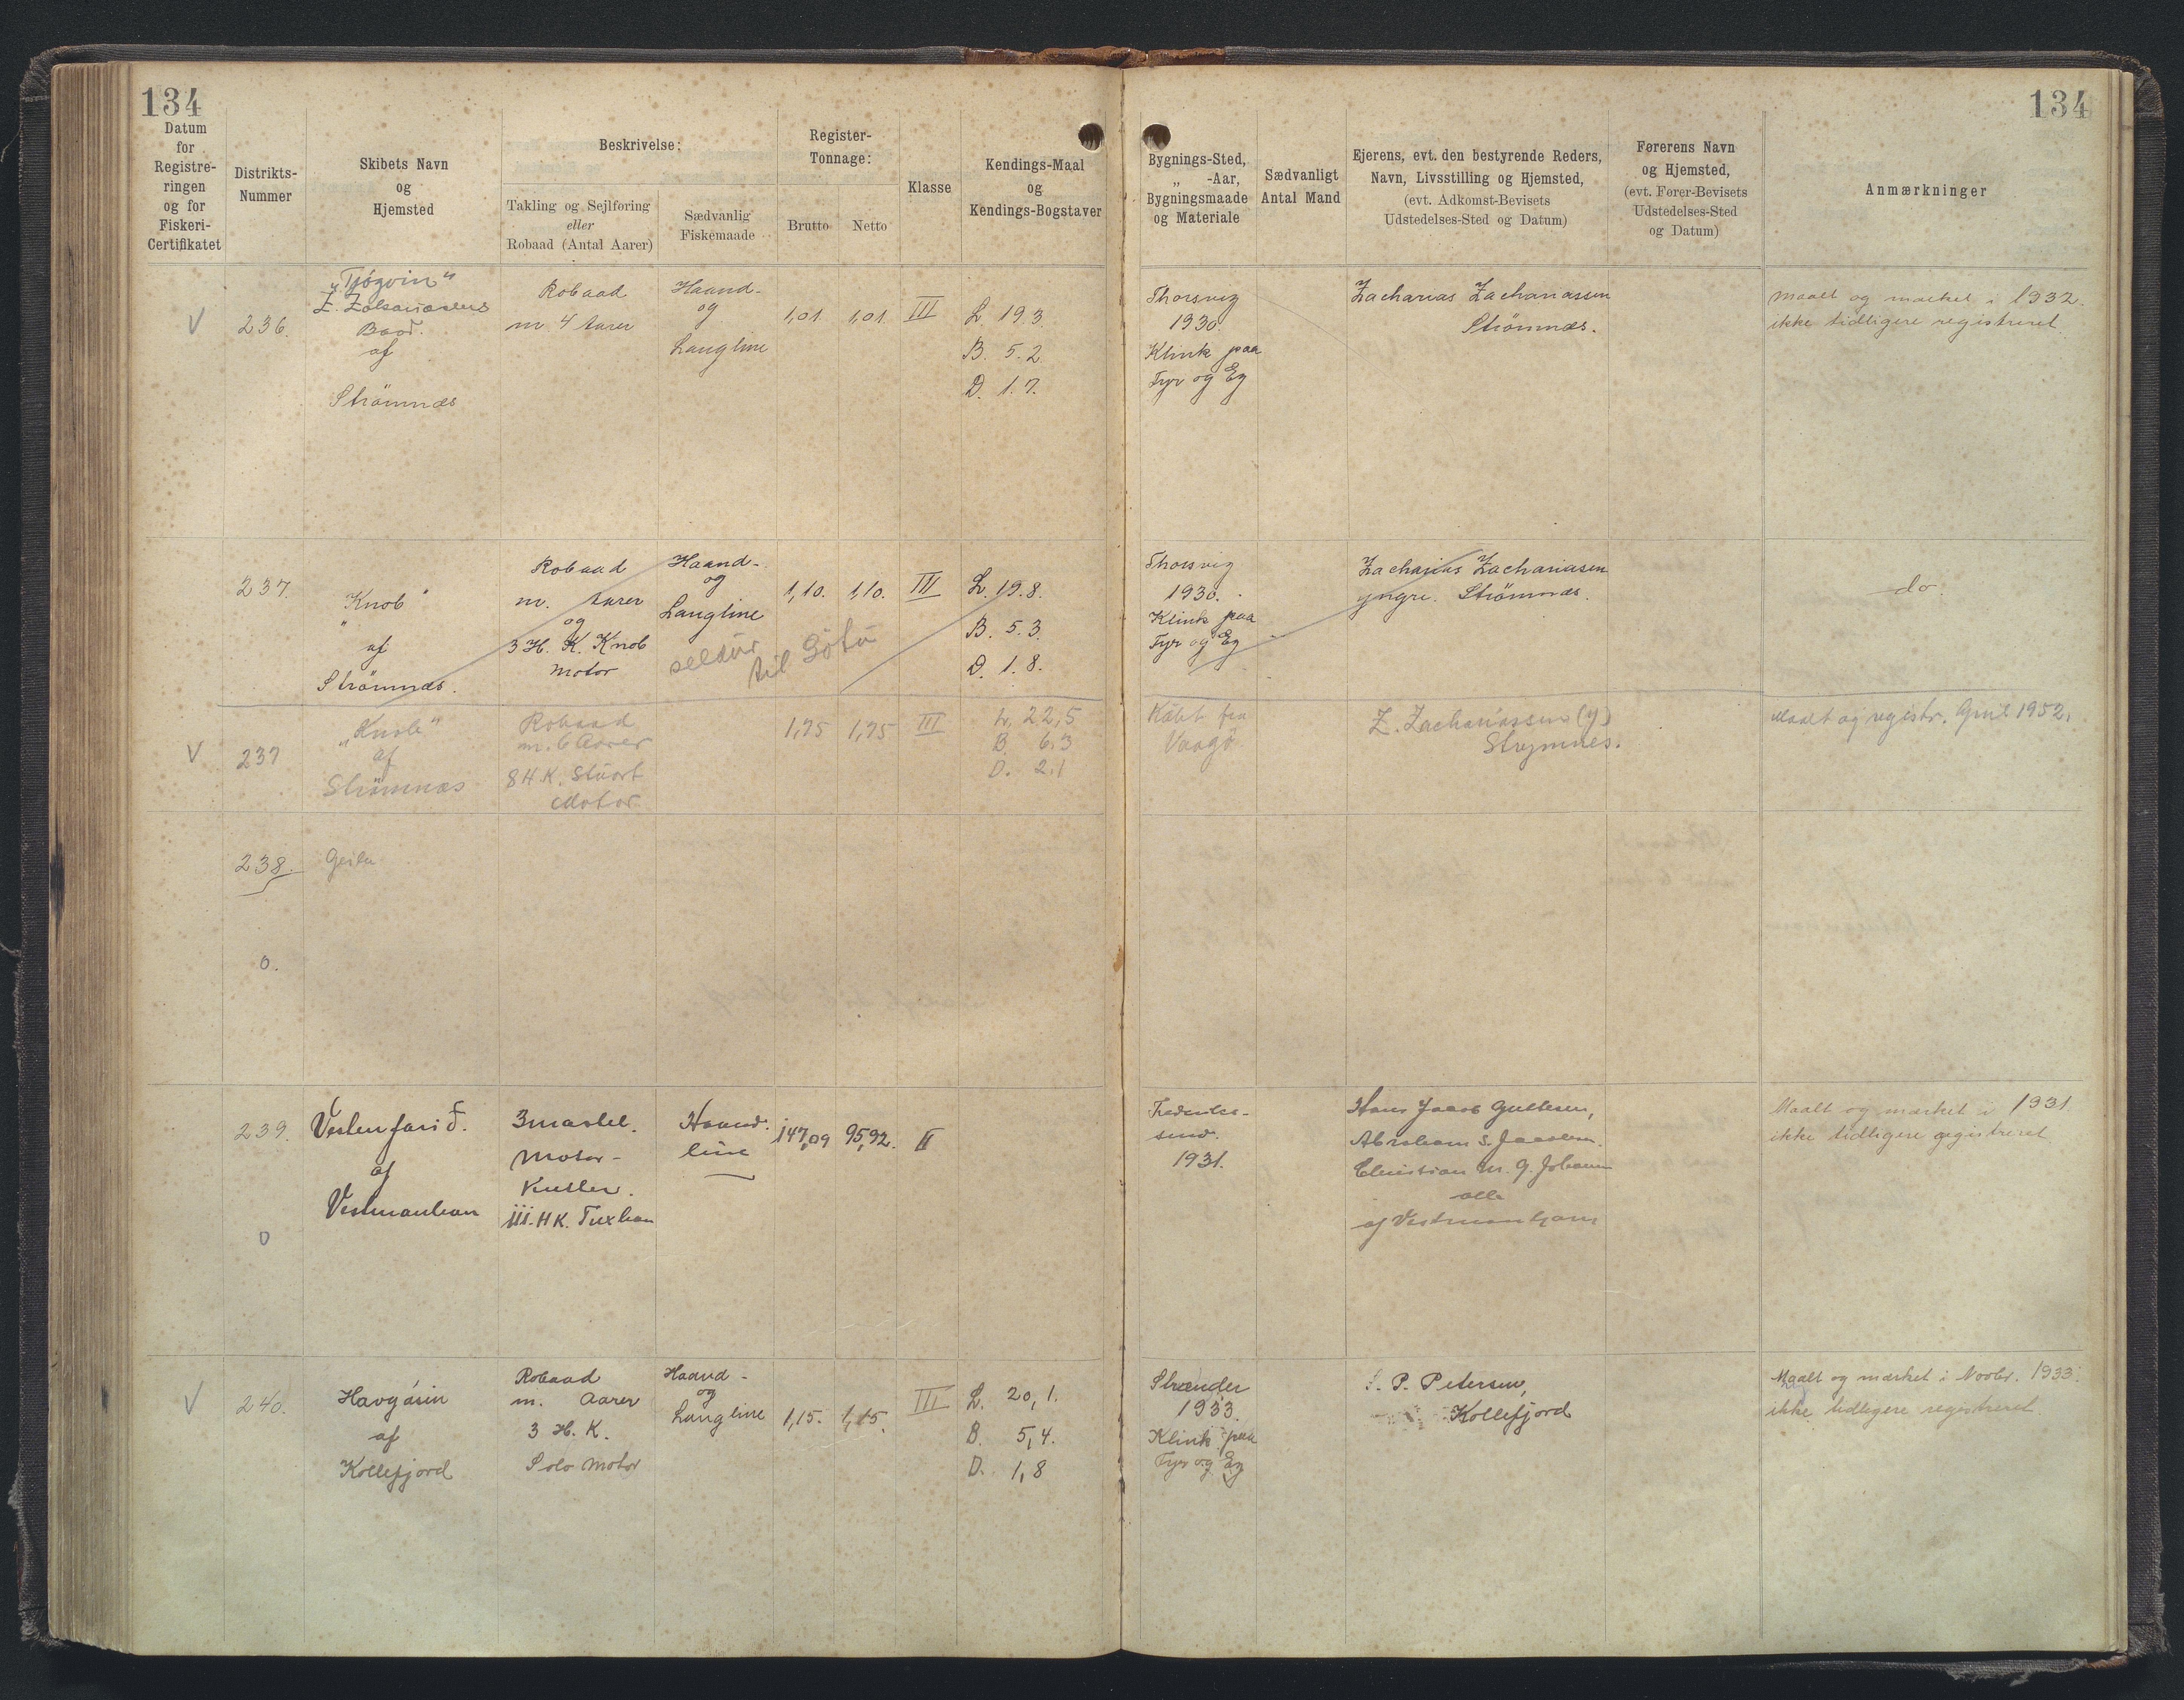 134
134
Datum
for
Registre-
ringen
og for
Fiskeri-
Certifikatet
Distrikts-
Nummer
Skibets Navn
og
Hjemsted
Beskrivelse:
Takling og Sejlføring
eller
Robaad (Antal Aarer)
Sædvanlig
Fiskemaade
Register-
Tonnage:
Brutto
Netto
Klasse
Kendings-Maal
og
Kendings-Bogstaver
Bygnings-Sted,
„ -Aar,
Bygningsmaade
og Materiale
Sædvanligt
Antal Mand
Ejerens, evt. den bestyrende Reders,
Navn, Livsstilling og Hjemsted,
(evt. Adkomst-Bevisets
Udstedelses-Sted og Datum)
Førerens Navn
og Hjemsted,
(evt. Fører-Bevisets
Udstedelses-Sted
og Datum)
Anmærkninger
V
236.
„Tjógvin“
Baad.
af
Strömnæs
Robaad
m 4 Aarer
Haand-
og
Langline
1,01.
1,01.
III
L. 19.3.
B. 5.2.
D. 1.7.
Thorsvig
1930.
Klink paa
Fyr og Eg
Zacharias Zachariassen
Strömnæs.
Maalt og mærket i 1932.
ikke tidligere registreret.
237.
„Knob“
af
Strömnæs.
Robaad
m. Aarer
og
3 H. K. Knob
Motor
Haand-
og
Langline
seldur
til Götu
1,10.
1,10.
III
L. 19.8.
B. 5.3.
D. 1.8.
Thorsvig
1930.
Klink paa
Fyr og Eg
Zacharias Zachariasen
yngre. Strömnæs.
do.
V
237
„Knob“
af
Strömnæs
Robaad
m. 6 Aarer
8 H.K. Stuart
Motor
1,75
1,75
III
L. 22,5
B. 6.3
D. 2.1
Købt fra
Vaagø
Z. Zachariassen (y)
Strymnes.
Maalt og registr. April 1952.
238.
0.
239.
Vesturfarið.
af
Vestmanhavn
3mastet.
Motor-
Kutter.
111. HK. Tuxham
Haand-
line
147,09
95,92.
II
Frederiks-
sund.
1931.
Hans Jacob
Abraham S.
Christian M.
alle
af Vestmanhavn
Maalt og mærket i 1931.
ikke tidligere registreret
0
V
240.
Havgásin
af
Kollefjord
Robaad
m. Aarer
3 H. K.
Solo Motor
Haand-
og
Langline
1,15.
1,15.
III
L. 20,1.
B. 5,4.
D. 1,8
Strænder
1933.
Klink paa
Fyr og Eg
P. Petersen,
Kollefjord
Maalt og mærket i Novbr. 1933.
ikke tidligere registreret.